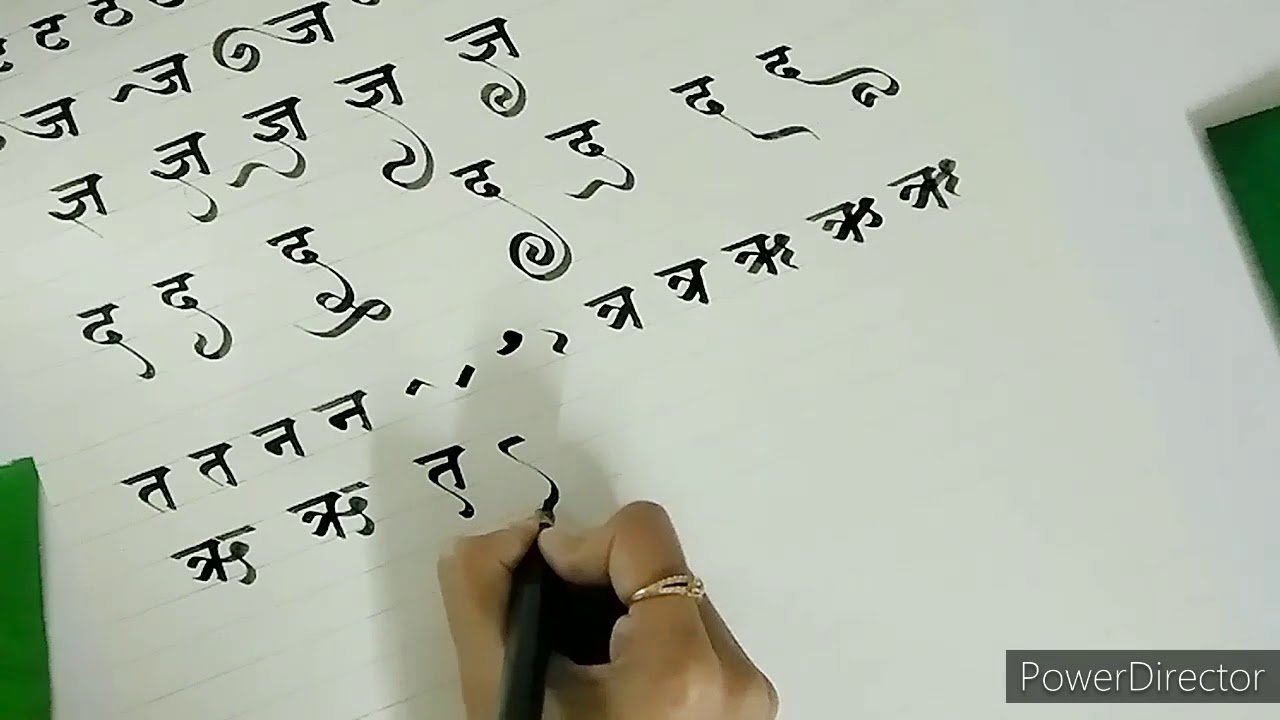 ट ठ
ज ज ज
ज ज ज ज ज
द द द द द द द
त त न न त्र त्र ऋ ऋ ऋ
ऋ ऋ त
PowerDirector